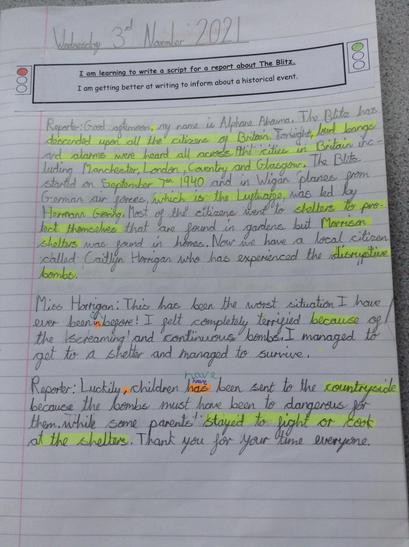 Wednesday 3rd November 2021
I am learning to write a script for a report about The Blitz.
I am getting better at writing to inform about a historical event.
Reporter: Good afternoon, my name is Alphane Abaima. The Blitz has
descended upon all the citizens of Britain. Tonight, loud bangs
and alarms were heard all across the cities in Britain inc-
luding Manchester, London, Coventry and Glasgow. The Blitz
started on September 7th 1940 and in Wigan planes from
German air forces, which is the Luftwaffe, was led by
Hermann Goering. Most of the citizens went to shelters to pro-
tect themselves that are found in gardens but Morrison
shelters was found in homes. Now we have a local citizen
called Caitlyn Horrigan who has experienced the disruptive
bombs.
Miss Horrigan: This has been the worst situation I have
ever been in before! I felt completely terrified because of
the screaming and continuous bombs. I managed to
get to a shelter and managed to survive.
have
have
Reporter: Luckily, children has been sent to the countryside
because the bombs must have been to dangerous for
them. While some parents stayed to fight or cook
at the shelters. Thank you for your time everyone.